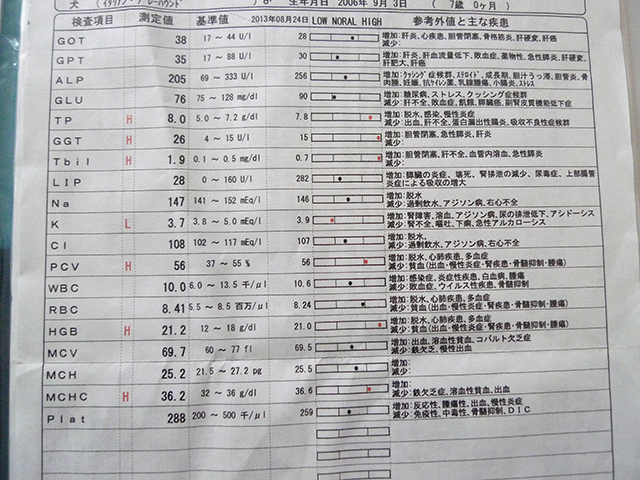 犬 (イタリアン・グレーハウンド) 生年月日 2006年 9月 3日 ( 7歳 0ヶ月 )
検査項目 測定値 基準値 2013年08月24日 LOW NORAL HIGH 参考外値と主な疾患
GOT 38 17 ~ 44 U/l 28 増加:肝炎、心疾患、胆管閉塞、骨格筋炎、肝硬変、肝癌
減少:
GPT 35 17 ~ 88 U/l 30 増加:肝炎、肝血流量低下、敗血症、薬物性、急性膵炎、肝硬変、
肝肥大、肝癌
ALP 205 69 ~ 333 U/l 256 増加:クッシング症候群、ステロイド、成長期、胆汁うっ滞、胆管炎、骨
肉腫、妊娠、抗ケイレン薬、乳腺腫瘍、小腸炎、ストレス
GLU 76 75 ~ 128 mg/dl 90 増加:糖尿病、ストレス、クッシング症候群
減少:肝不全、敗血症、飢餓、膵臓癌、副腎皮質機能低下症
TP H 8.0 5.0 ~ 7.2 g/dl 7.8 増加:脱水、感染、慢性炎症
減少:出血、肝不全、蛋白漏出性腸炎、吸収不良性症候群
GGT H 26 4 ~ 15 U/l 15 増加:胆管閉塞、急性膵炎、肝炎
減少:
Tbil H 1.9 0.1 ~ 0.5 mg/dl 0.7 増加:胆管閉塞、肝不全、血管内溶血、急性膵炎
減少:
LIP 28 0 ~ 160 U/l 282 増加:膵臓の炎症、壊死、腎排泄の減少、尿毒症、上部腸管
炎症による吸収の増大
Na 147 141 ~ 152 mEq/l 146 増加:脱水
減少:過剰飲水、アジソン病、右心不全
K L 3.7 3.8 ~ 5.0 mEq/l 3.9 増加:腎障害、溶血、アジソン病、尿の排泄低下、アシドーシス
減少:腎不全、嘔吐、下痢、急性アルカローシス
Cl 108 102 ~ 117 mEq/l 107 増加:脱水、
減少:過剰飲水、アジソン病、右心不全
PCV H 56 37 ~ 55 % 56 増加:脱水、心肺疾患、多血症
減少:貧血(出血・慢性炎症・腎疾患・骨髄抑制・腫瘍)
WBC 10.0 6.0 ~ 13.5 千/μl 10.6 増加:感染症、炎症性疾患、白血病、腫瘍
減少:敗血症、ウイルス性疾患、骨髄抑制
RBC 8.41 5.5 ~ 8.5 百万/μl 8.24 増加:脱水、心肺疾患、多血症
減少:貧血(出血・慢性炎症・腎疾患・骨髄抑制・腫瘍)
HGB H 21.2 12 ~ 18 g/dl 21.0 増加:脱水、心肺疾患、多血症
減少:貧血(出血・慢性炎症・腎疾患・骨髄抑制・腫瘍)
MCV 69.7 60 ~ 77 fl 69.5 増加:出血、溶血性貧血、コバルト欠乏症
減少:鉄欠乏、慢性出血
MCH 25.2 21.5 ~ 27.2 pg 25.5 増加:
減少:
MCHC H 36.2 32 ~ 36 g/dl 36.6 増加:
減少:鉄欠乏症、溶血性貧血、出血
Plat 288 200 ~ 500 千/μl 259 増加:反応性、腫瘍性、出血、慢性炎症
減少:免疫性、中毒性、骨髄抑制、DIC